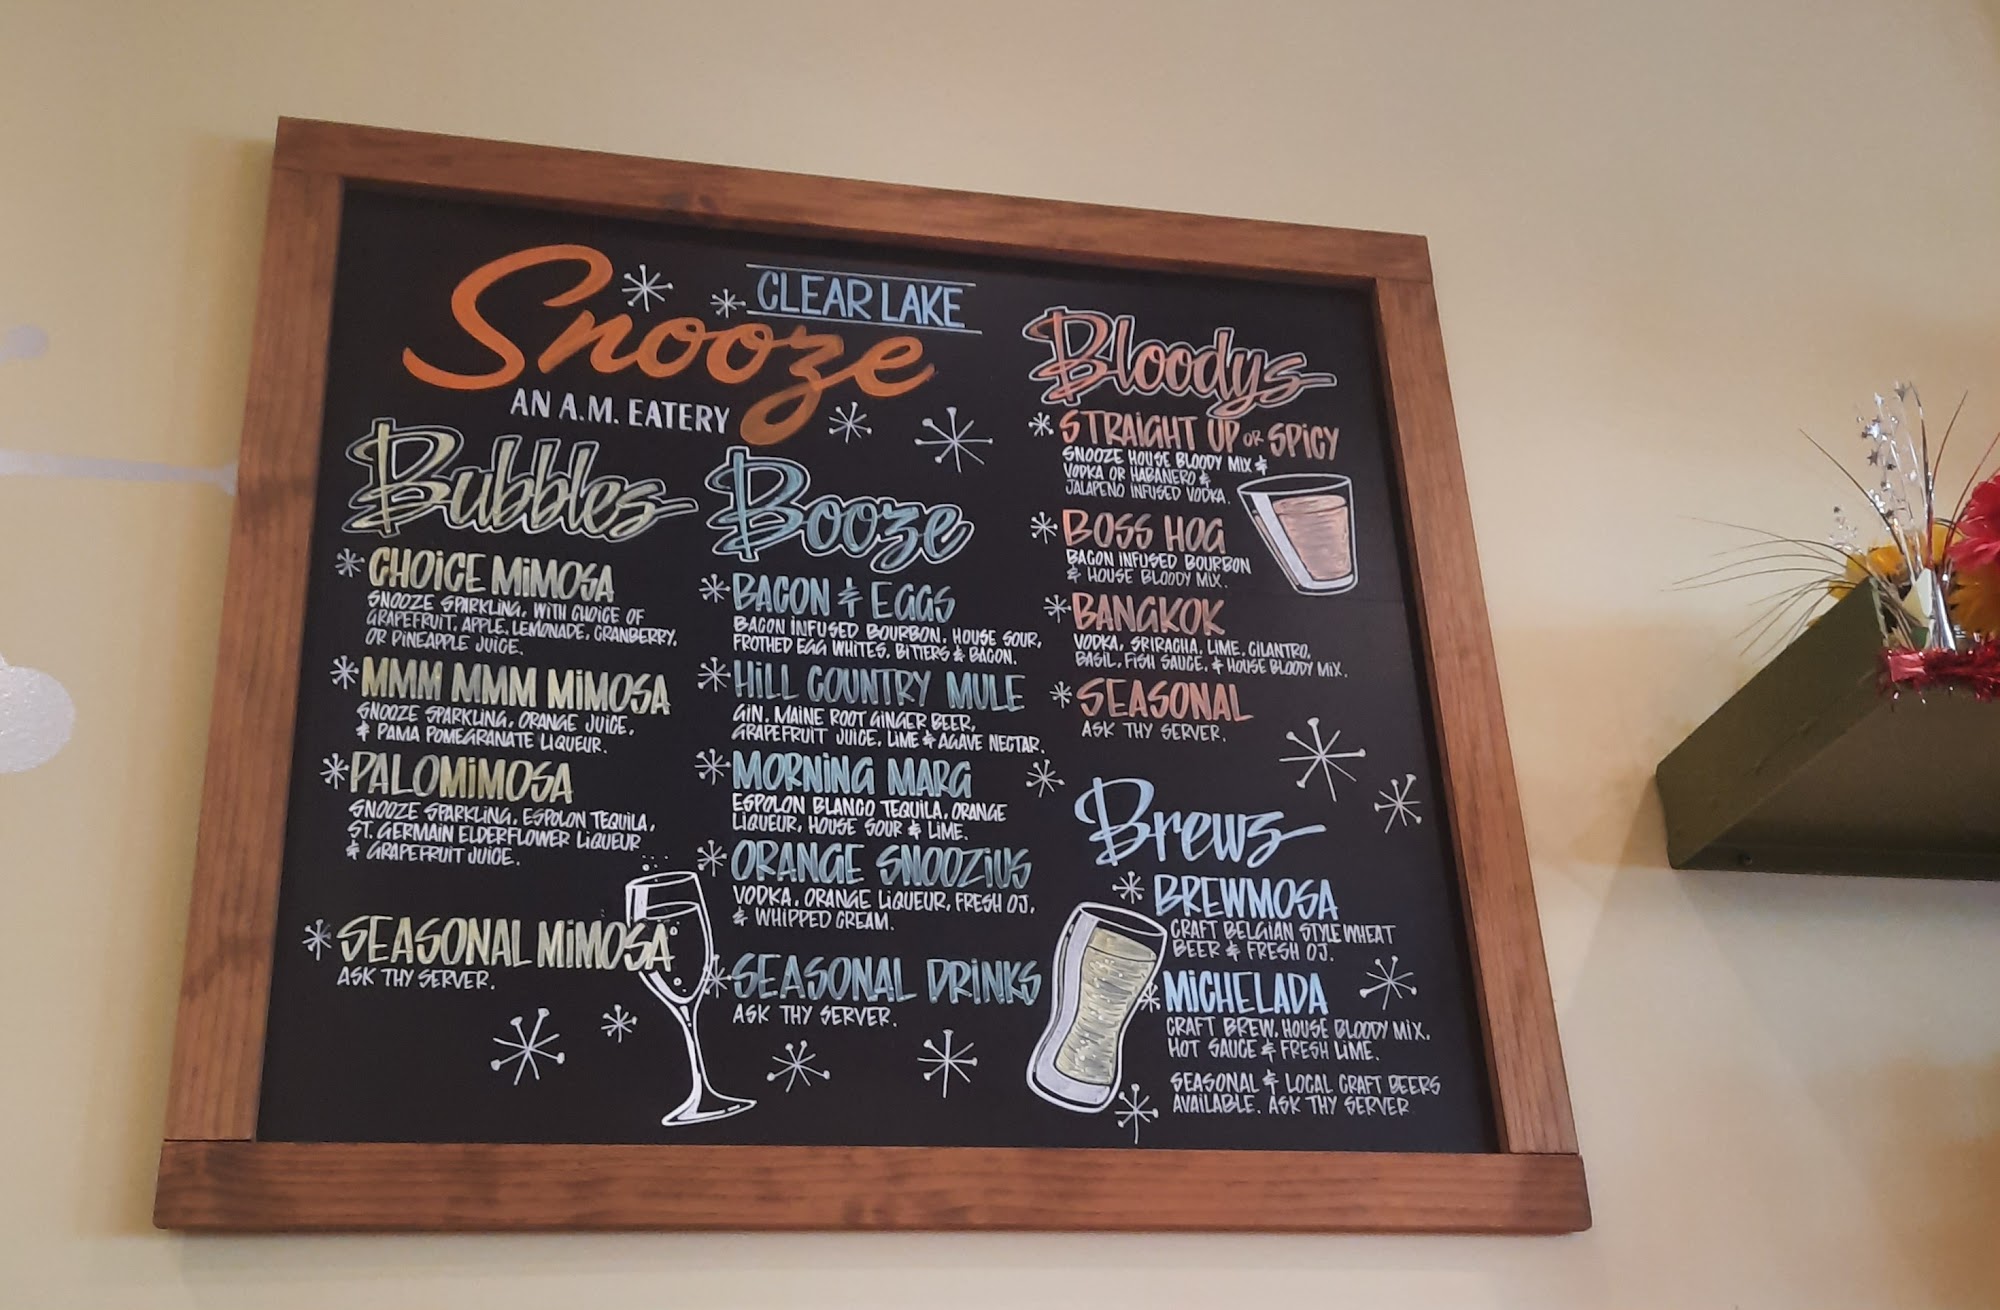 CLEAR LAKE
Snooze
AN A.M. EATERY
Bubbles
CHOICE MIMOSA
SNOOZE SPARKLING, WITH CHOICE OF
GRAPEFRUIT, APPLE, LEMONADE, CRANBERRY,
OR PINEAPPLE JUICE.
MMM MMM MIMOSA
SNOOZE SPARKLING, ORANGE JUICE,
& PAMA POMEGRANATE LIQUEUR.
PALOMIMOSA
SNOOZE SPARKLING, ESPOLON TEQUILA,
ST. GERMAIN ELDERFLOWER LIQUEUR
& GRAPEFRUIT JUICE.
SEASONAL MIMOSA
ASK THY SERVER.
Booze
BACON & EGGS
BACON INFUSED BOURBON, HOUSE SOUR,
FROTHED EGG WHITES, BITTERS & BACON.
HILL COUNTRY MULE
GIN, MAINE ROOT GINGER BEER,
GRAPEFRUIT JUICE, LIME & AGAVE NECTAR.
MORNING MARG
ESPOLON BLANCO TEQUILA, ORANGE
LIQUEUR, HOUSE SOUR & LIME.
ORANGE SNOOZIUS
VODKA, ORANGE LIQUEUR, FRESH OJ,
& WHIPPED CREAM.
SEASONAL DRINKS
ASK THY SERVER.
Bloodys
STRAIGHT UP OR SPICY
SNOOZE HOUSE BLOODY MIX &
VODKA OR HABANERO &
JALAPENO INFUSED VODKA.
BOSS HOG
BACON INFUSED BOURBON
& HOUSE BLOODY MIX.
BANGKOK
VODKA, SRIRACHA, LIME, CILANTRO,
BASIL, FISH SAUCE, & HOUSE BLOODY MIX.
SEASONAL
ASK THY SERVER.
Brews
BREWMOSA
CRAFT BELGIAN STYLE WHEAT
BEER & FRESH OJ.
MICHELADA
CRAFT BREW, HOUSE BLOODY MIX,
HOT SAUCE & FRESH LIME.
SEASONAL & LOCAL CRAFT BEERS
AVAILABLE. ASK THY SERVER